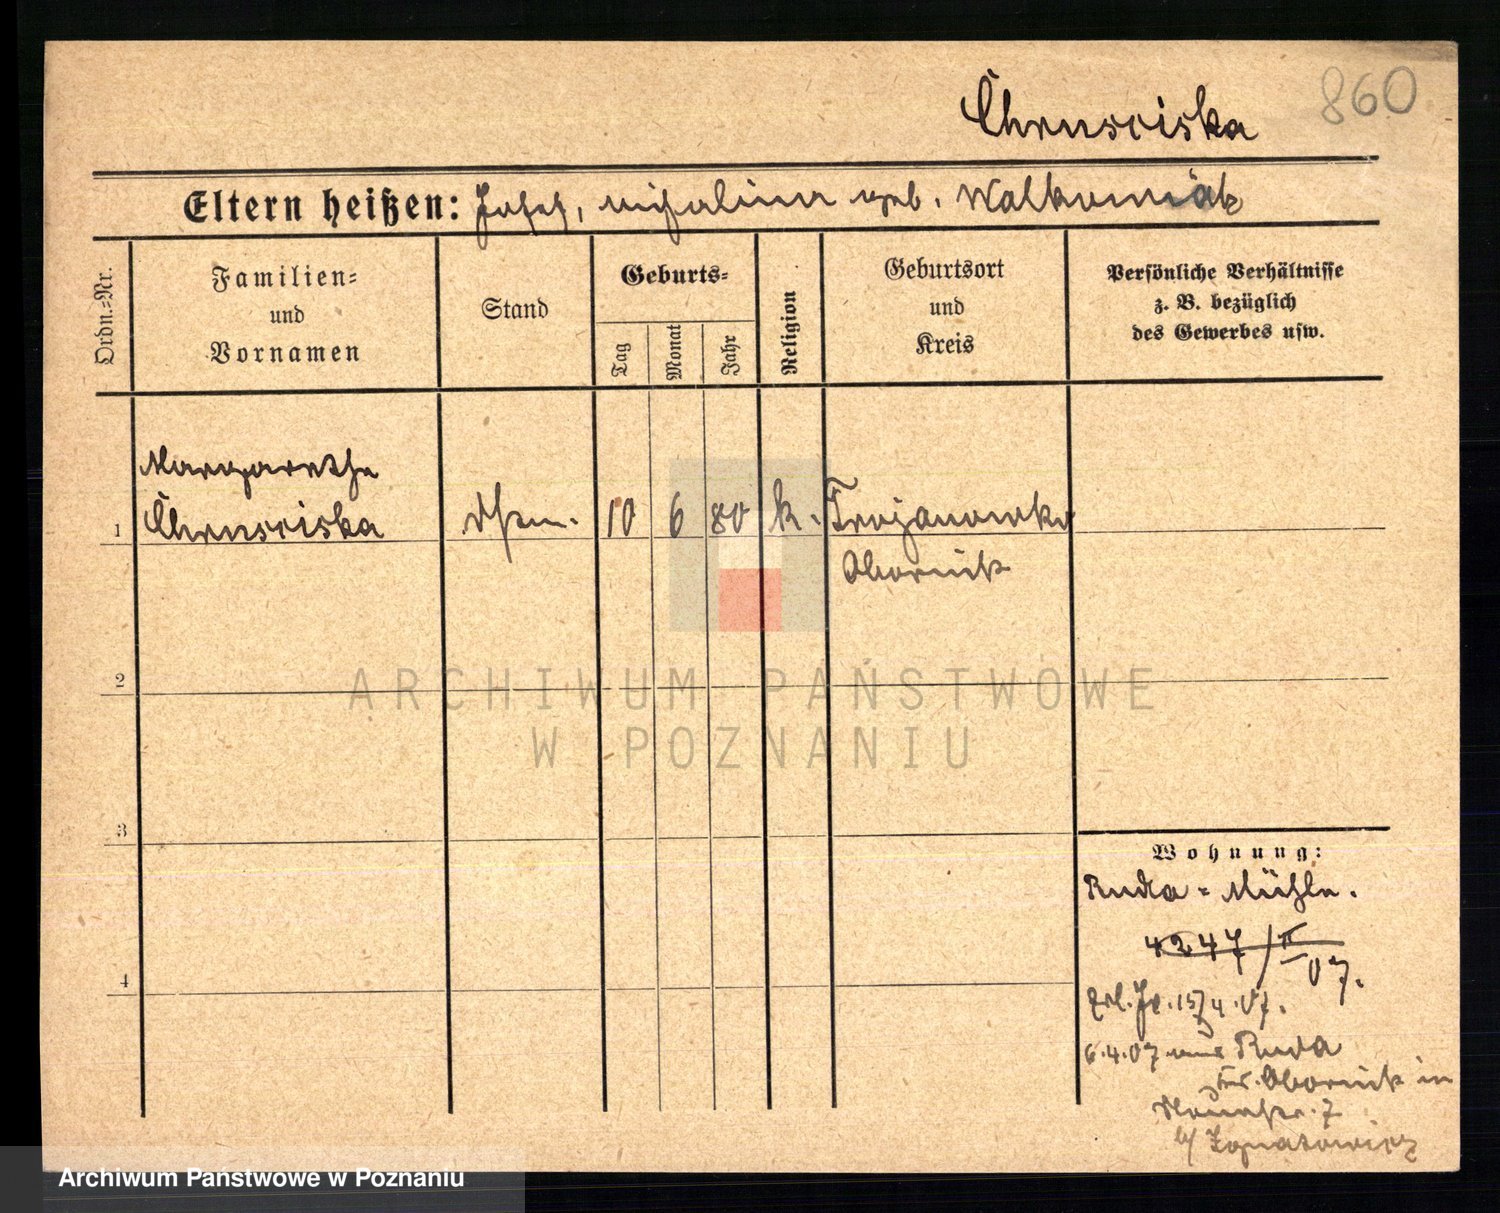 860
Chrusciska
Eltern heißen: Josef, Michalina geb. Walkowiak
Ordn.=Nr.
Familien=
und
Vornamen
Stand
Geburts=
Tag
Monat
Jahr
Religion
Geburtsort
und
Kreis
Persönliche Verhältnisse
z. B. bezüglich
des Gewerbes usw.
Margarethe
1 Chrusciska 10 6 80 k. Trojanowko
Obornik
2
ARCHIWUM PAŃSTWOWE
W POZNANIU
3
Wohnung:
Ruda=Mühle.
4247/II
07.
4
15/4.07.
6.4.07 aus Ruda
Kr. Obornik in
7
b/ Ignatowicz
Archiwum Państwowe w Poznaniu